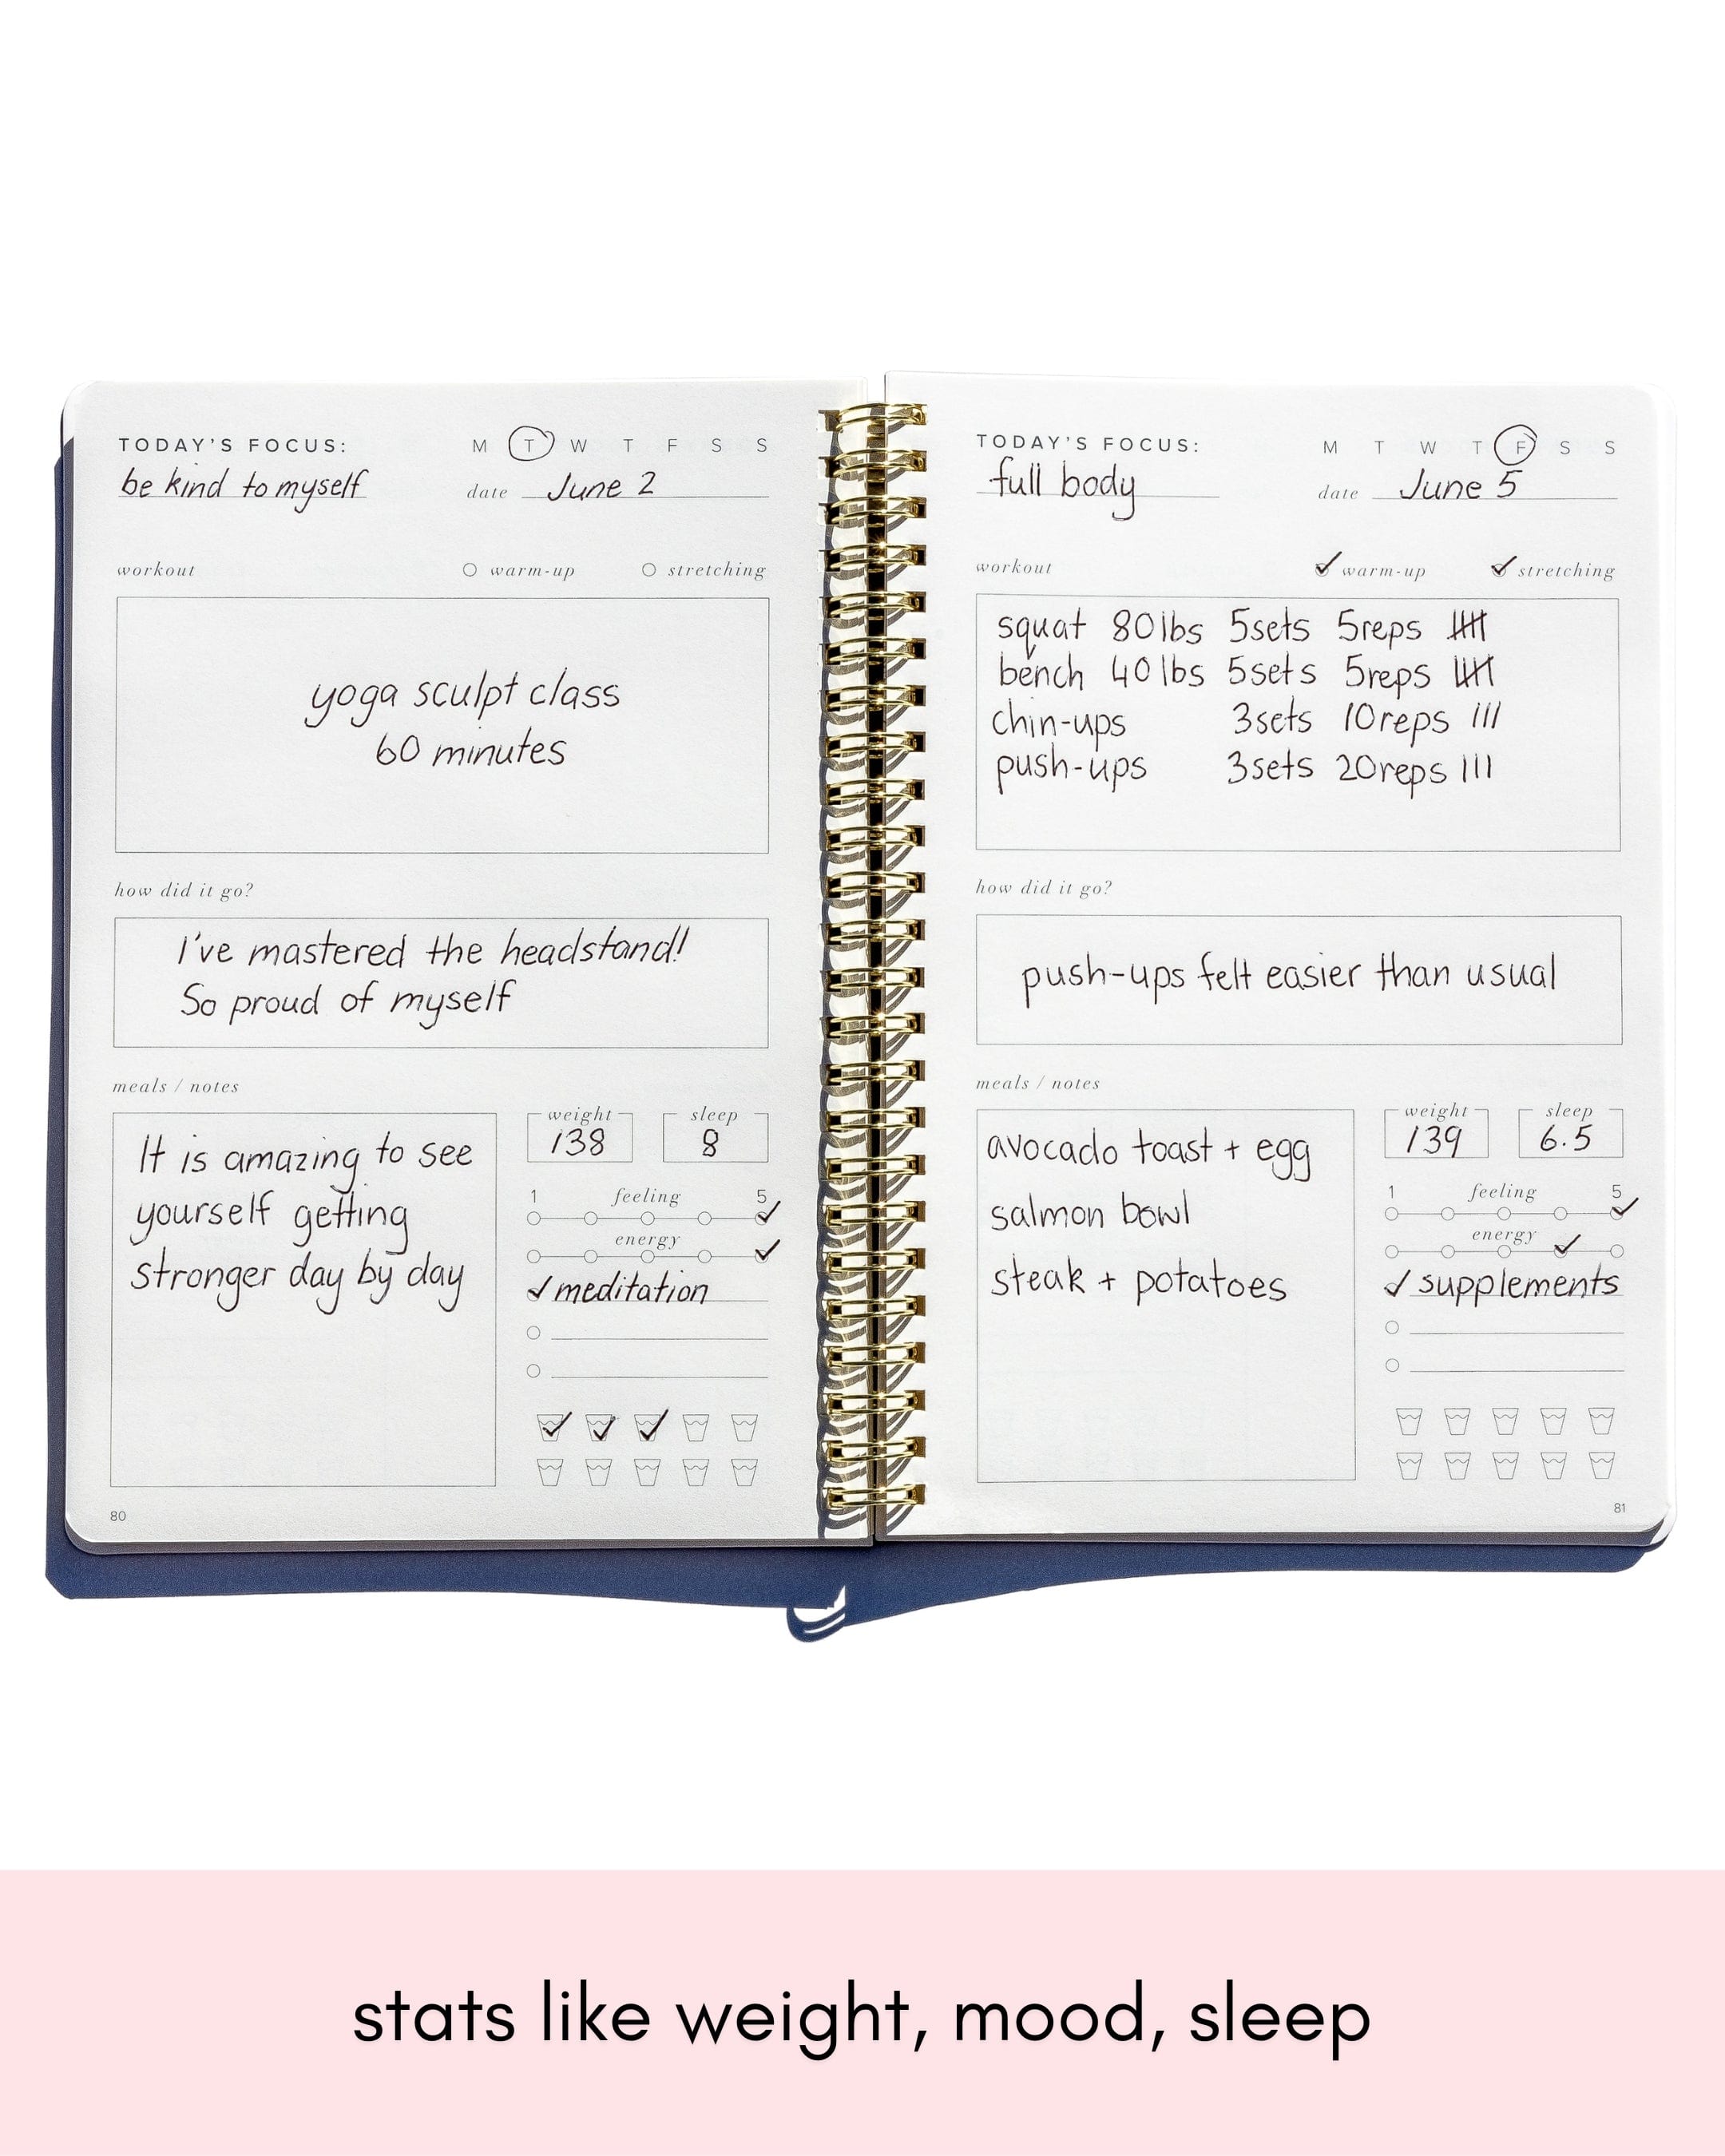 TODAY'S FOCUS:
be kind to myself
M T W T F S S
date June 2
workout
warm-up stretching
yoga sculpt class
60 minutes
how did it go?
I've mastered the headstand!
So proud of myself
meals / notes
It is amazing to see
yourself getting
stronger day by day
weight sleep
138 8
1 feeling 5
energy
meditation
80
TODAY'S FOCUS:
full body
M T W T F S S
date June 5
workout
warm-up stretching
squat 80 lbs 5sets 5reps
bench 40 lbs 5sets 5reps
chin-ups 3sets 10reps
push-ups 3sets 20reps
how did it go?
push-ups felt easier than usual
meals / notes
avocado toast + egg
salmon bowl
steak + potatoes
weight sleep
139 6.5
1 feeling 5
energy
supplements
81
stats like weight, mood, sleep